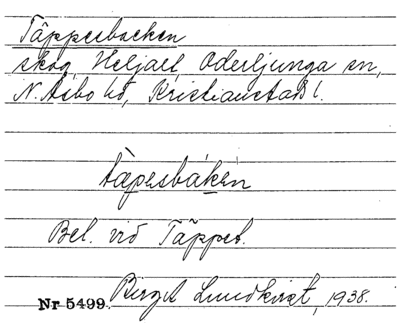 Täppesbacken
skog, Heljalt, Oderljunga sn,
N. Åsbo hd, Kristianstads l.
tàpesbáken
Bel. vid Täppet.
Nr 5499. Birgit Lundkvist, 1938.